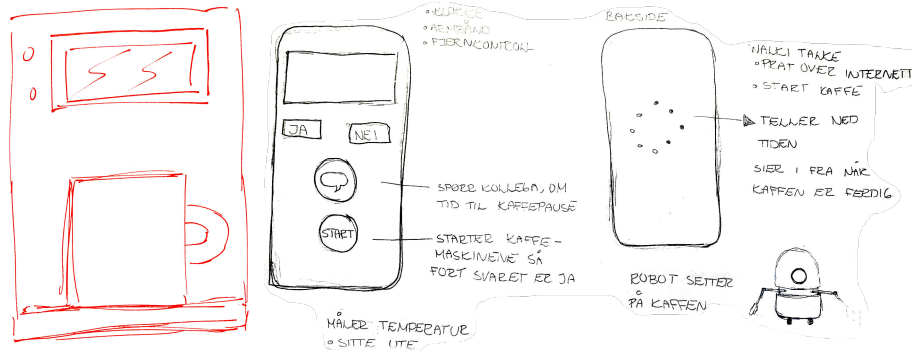 • KLOKKE
• ARMBÅND
• FJERNKONTROLL
JA
NEI
START
SPØRR KOLLEGA, OM
TID TIL KAFFEPAUSE
STARTER KAFFE-
MASKINENE SÅ
FORT SVARET ER JA
MÅLER TEMPERATUR
• SITTE UTE
BAKSIDE
TANKE
• PRAT OVER INTERNETT
• START KAFFE
TELLER NED
TIDEN
SIER I FRA NÅR
KAFFEN ER FERDIG
ROBOT SETTER
PÅ KAFFEN